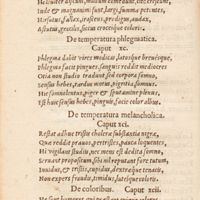 Inde & magnanimi sunt, largi, summa petentes,
Hirsutus, fallax, irascens, prodigus, audax,
Astutus, gracilis, siccus croceique coloris.
De temperatura phlegmatica.
Caput xc.
Phlegma dabit vires modicas, latosque brevesque,
Phlegma facit pingues, sanguis reddit mediocres
Otia non studio tradunt, sed corpora somno,
Sensus hebes, tardus motus, pigritia, somnus.
Hic somnolentus, piger & sputamine plenus,
Est huic sensus hebes, pinguis, facie color albus.
De temperatura melancholica.
Caput xci.
Restat adhuc tristis choleræ substantia nigræ,
Quæ reddit pravos, pertristes, pauca loquentes,
Hi vigilant studiis, nec mens est dedita somno,
Servant propositum, sibi nil reputant fore tutum,
Invidus, & tristis, cupidus, dextræque tenacis,
Non expers fraudis, timidus, luteique coloris.
De coloribus. Caput xcii.